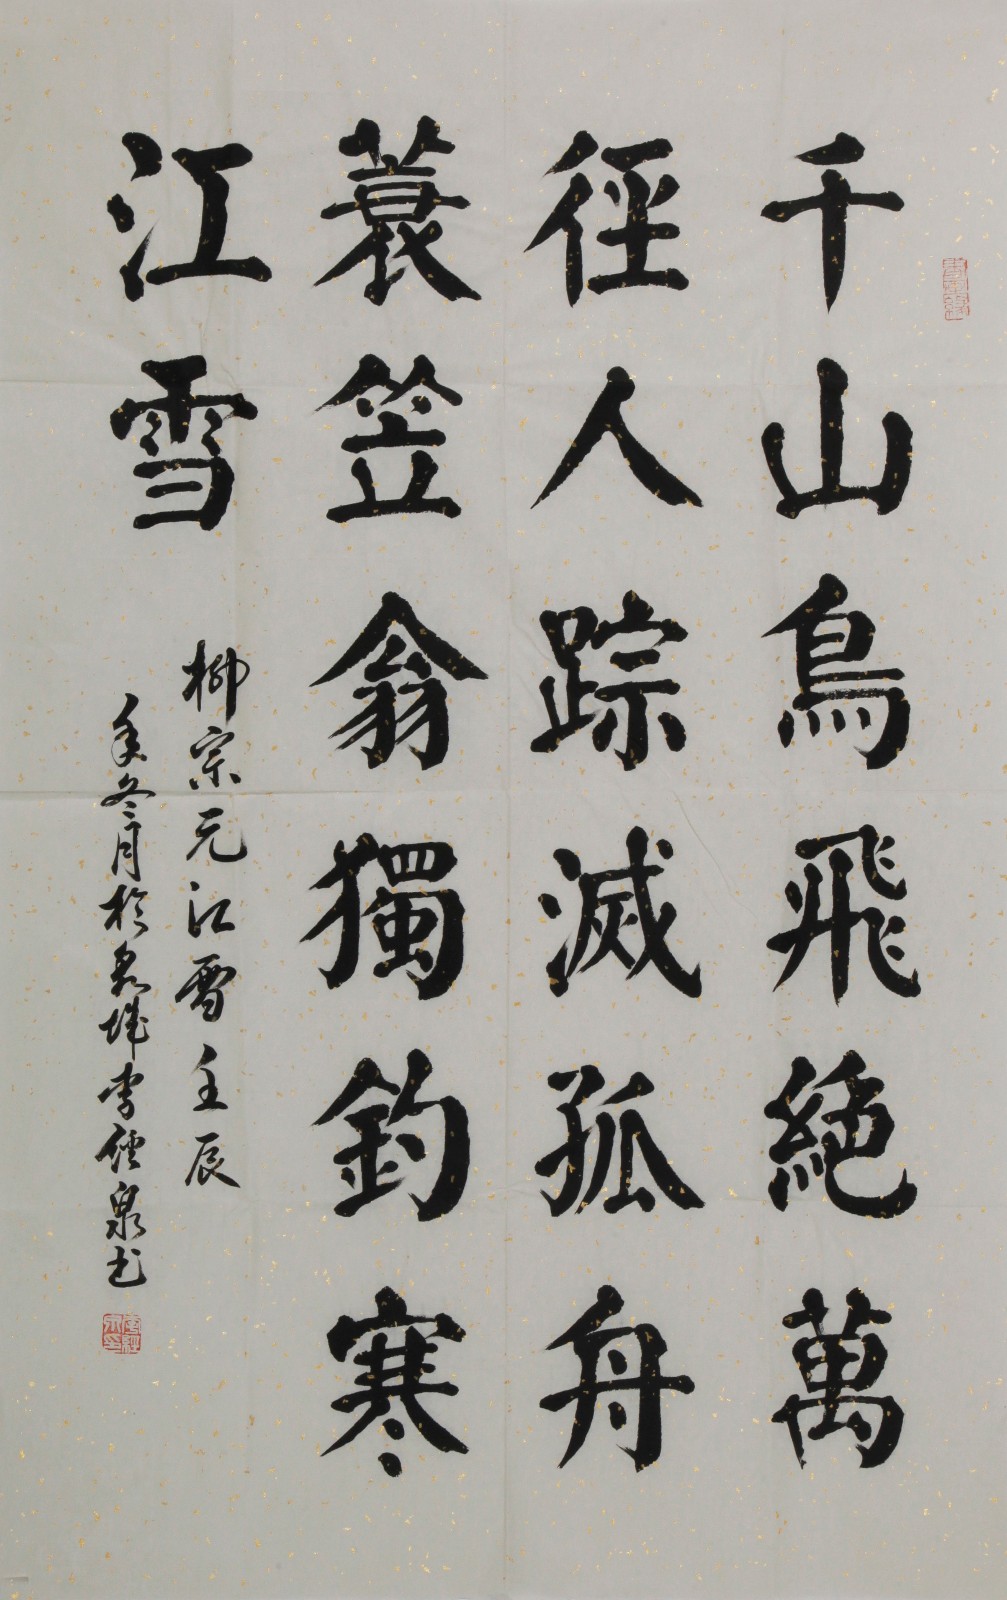 千山鳥飛絕萬
徑人踪滅孤舟
蓑笠翁獨釣寒
江雪
柳宗元江雪壬辰
年冬月於泉城李經泉书